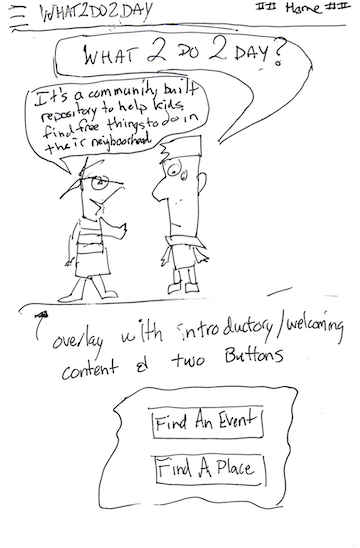 WHAT2DO2DAY
## Home ##
WHAT 2 DO 2 DAY?
It's a community built
repository to help kids
find free things to do in
their neighborhood
overlay with introductory/welcoming
content & two Buttons
Find An Event
Find A Place